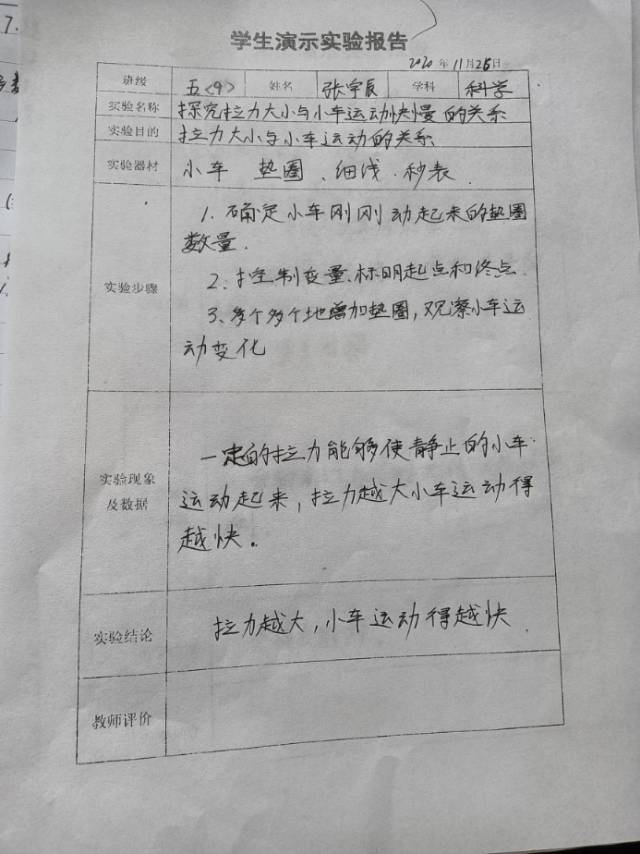 学生演示实验报告
2020年11月26日
班级 五(9) 姓名 张宇辰 学科 科学
实验名称 探究拉力大小与小车运动快慢的关系
实验目的 拉力大小与小车运动的关系
实验器材 小车 垫圈、细线、秒表
1、确定小车刚刚动起来的垫圈
数量.
实验步骤
2、控制变量、标明起点和终点
3、多个多个地增加垫圈,观察小车运
动变化
一定的拉力能够使静止的小车
实验现象
及数据
运动起来,拉力越大小车运动得
越快。
实验结论 拉力越大,小车运动得越快
教师评价